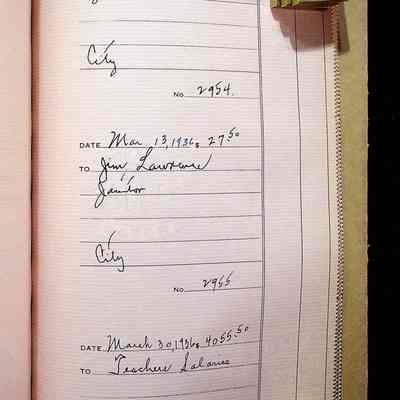 City
No. 2954.
DATE Mar. 13, 1936 $ 27.50
TO Jim Lawrence
Janitor
City
No. 2955
DATE March 30, 1936 $ 4055.50
TO Teachers Salaries